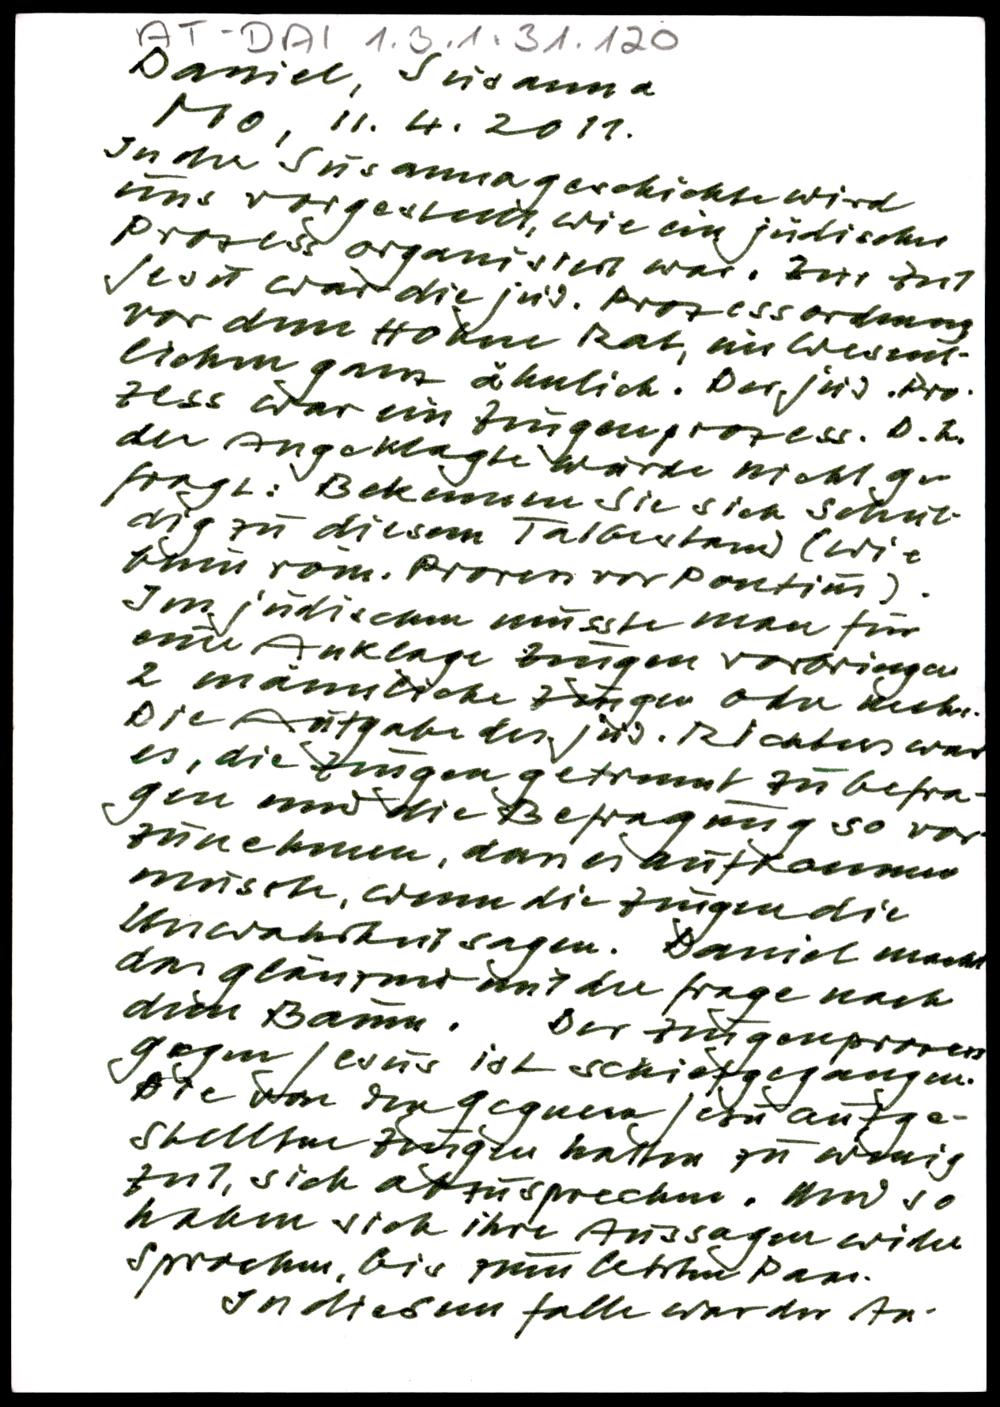 AT-DAI 1.3.1.31.120
Daniel, Susanna
Mo, 11. 4. 2011.
In der Susannageschichte wird
uns vorgestellt, wie ein jüdischer
Prozess organisiert war. Zur Zeit
Jesu war die jüd. Prozessordnung
vor dem Hohen Rat, im Wesent-
lichen ganz ähnlich. Der jüd. Pro-
zess war ein Zeugenprozess. D.h.
der Angeklagte wurde nicht ge-
fragt: Bekennen Sie sich schul-
dig zu diesem Tatbestand (wie
beim röm. Prozess vor Pontius).
Im jüdischen musste man für
eine Anklage Zeugen vorbringen
2 männliche Zeugen oder mehr.
Die Aufgabe des jüd. Richters war
es, die Zeugen getrennt zu befra-
gen und die Befragung so vor-
zunehmen, dass es aufkommen
musste, wenn die Zeugen die
Unwahrheit sagen. Daniel macht
das glänzend mit der Frage nach
dem Baum. Der Zeugenprozess
gegen Jesus ist schiefgegangen.
Die von den Gegnern Jesu aufge-
stellten Zeugen hatten zu wenig
Zeit, sich abzusprechen. Und so
haben sich ihre Aussagen wider
sprochen, bis zum letzten Paar.
In diesem Falle war der An-